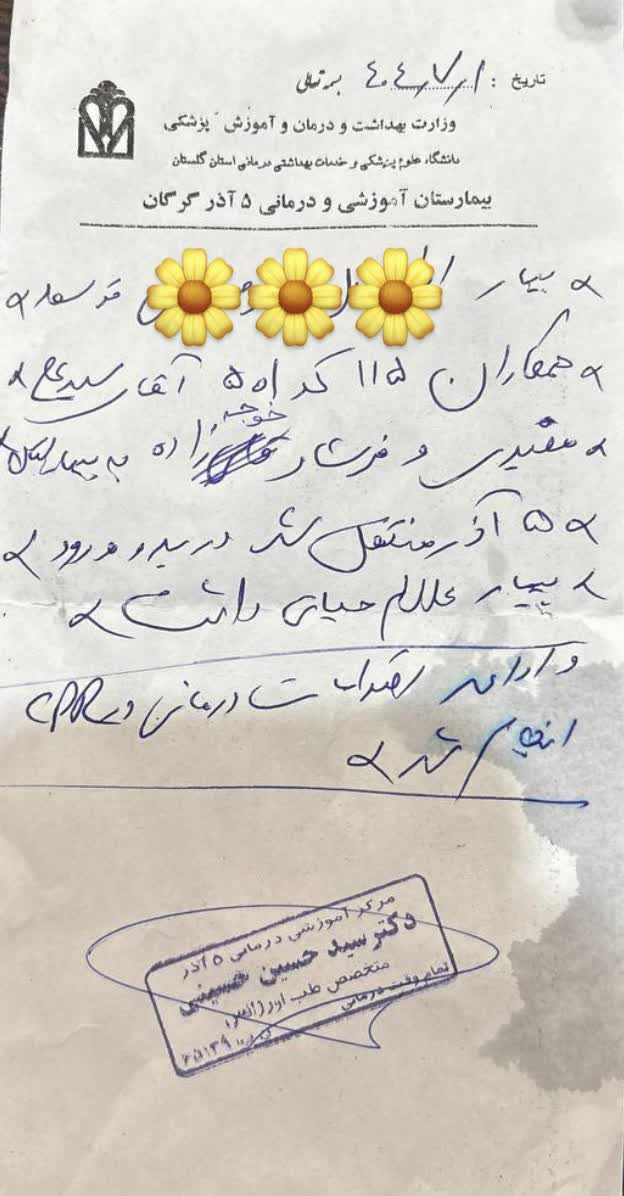 تاریخ : ۴۰۴/۷/۱
بسمه تعالی
وزارت بهداشت و درمان و آموزش پزشکی
دانشگاه علوم پزشکی و خدمات بهداشتی درمانی استان گلستان
بیمارستان آموزشی و درمانی ۵ آذر گرگان
بیمار توسط
همکاران ۱۱۵ کد ۵۰۱ آقای سید علی
مفیدی و فرشاد خوجه زاده به بیمارستان
۵ آذر منتقل شد در بدو ورود
بیمار علائم حیاتی داشت
و ادامه اقدامات درمانی و CPR
انجام شد
مرکز آموزشی درمانی ۵ آذر
دکتر سید حسین حسینی
متخصص طب اورژانس
تمام وقت درمانی